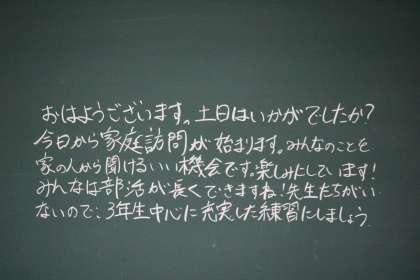 おはようございます。土日はいかがでしたか?
今日から家庭訪問が始まります。みんなのことを
家の人から聞けるいい機会です。楽しみにしています!
みんなは部活が長くできますね!先生たちがい
ないので、3年生中心に充実した練習にしましょう。